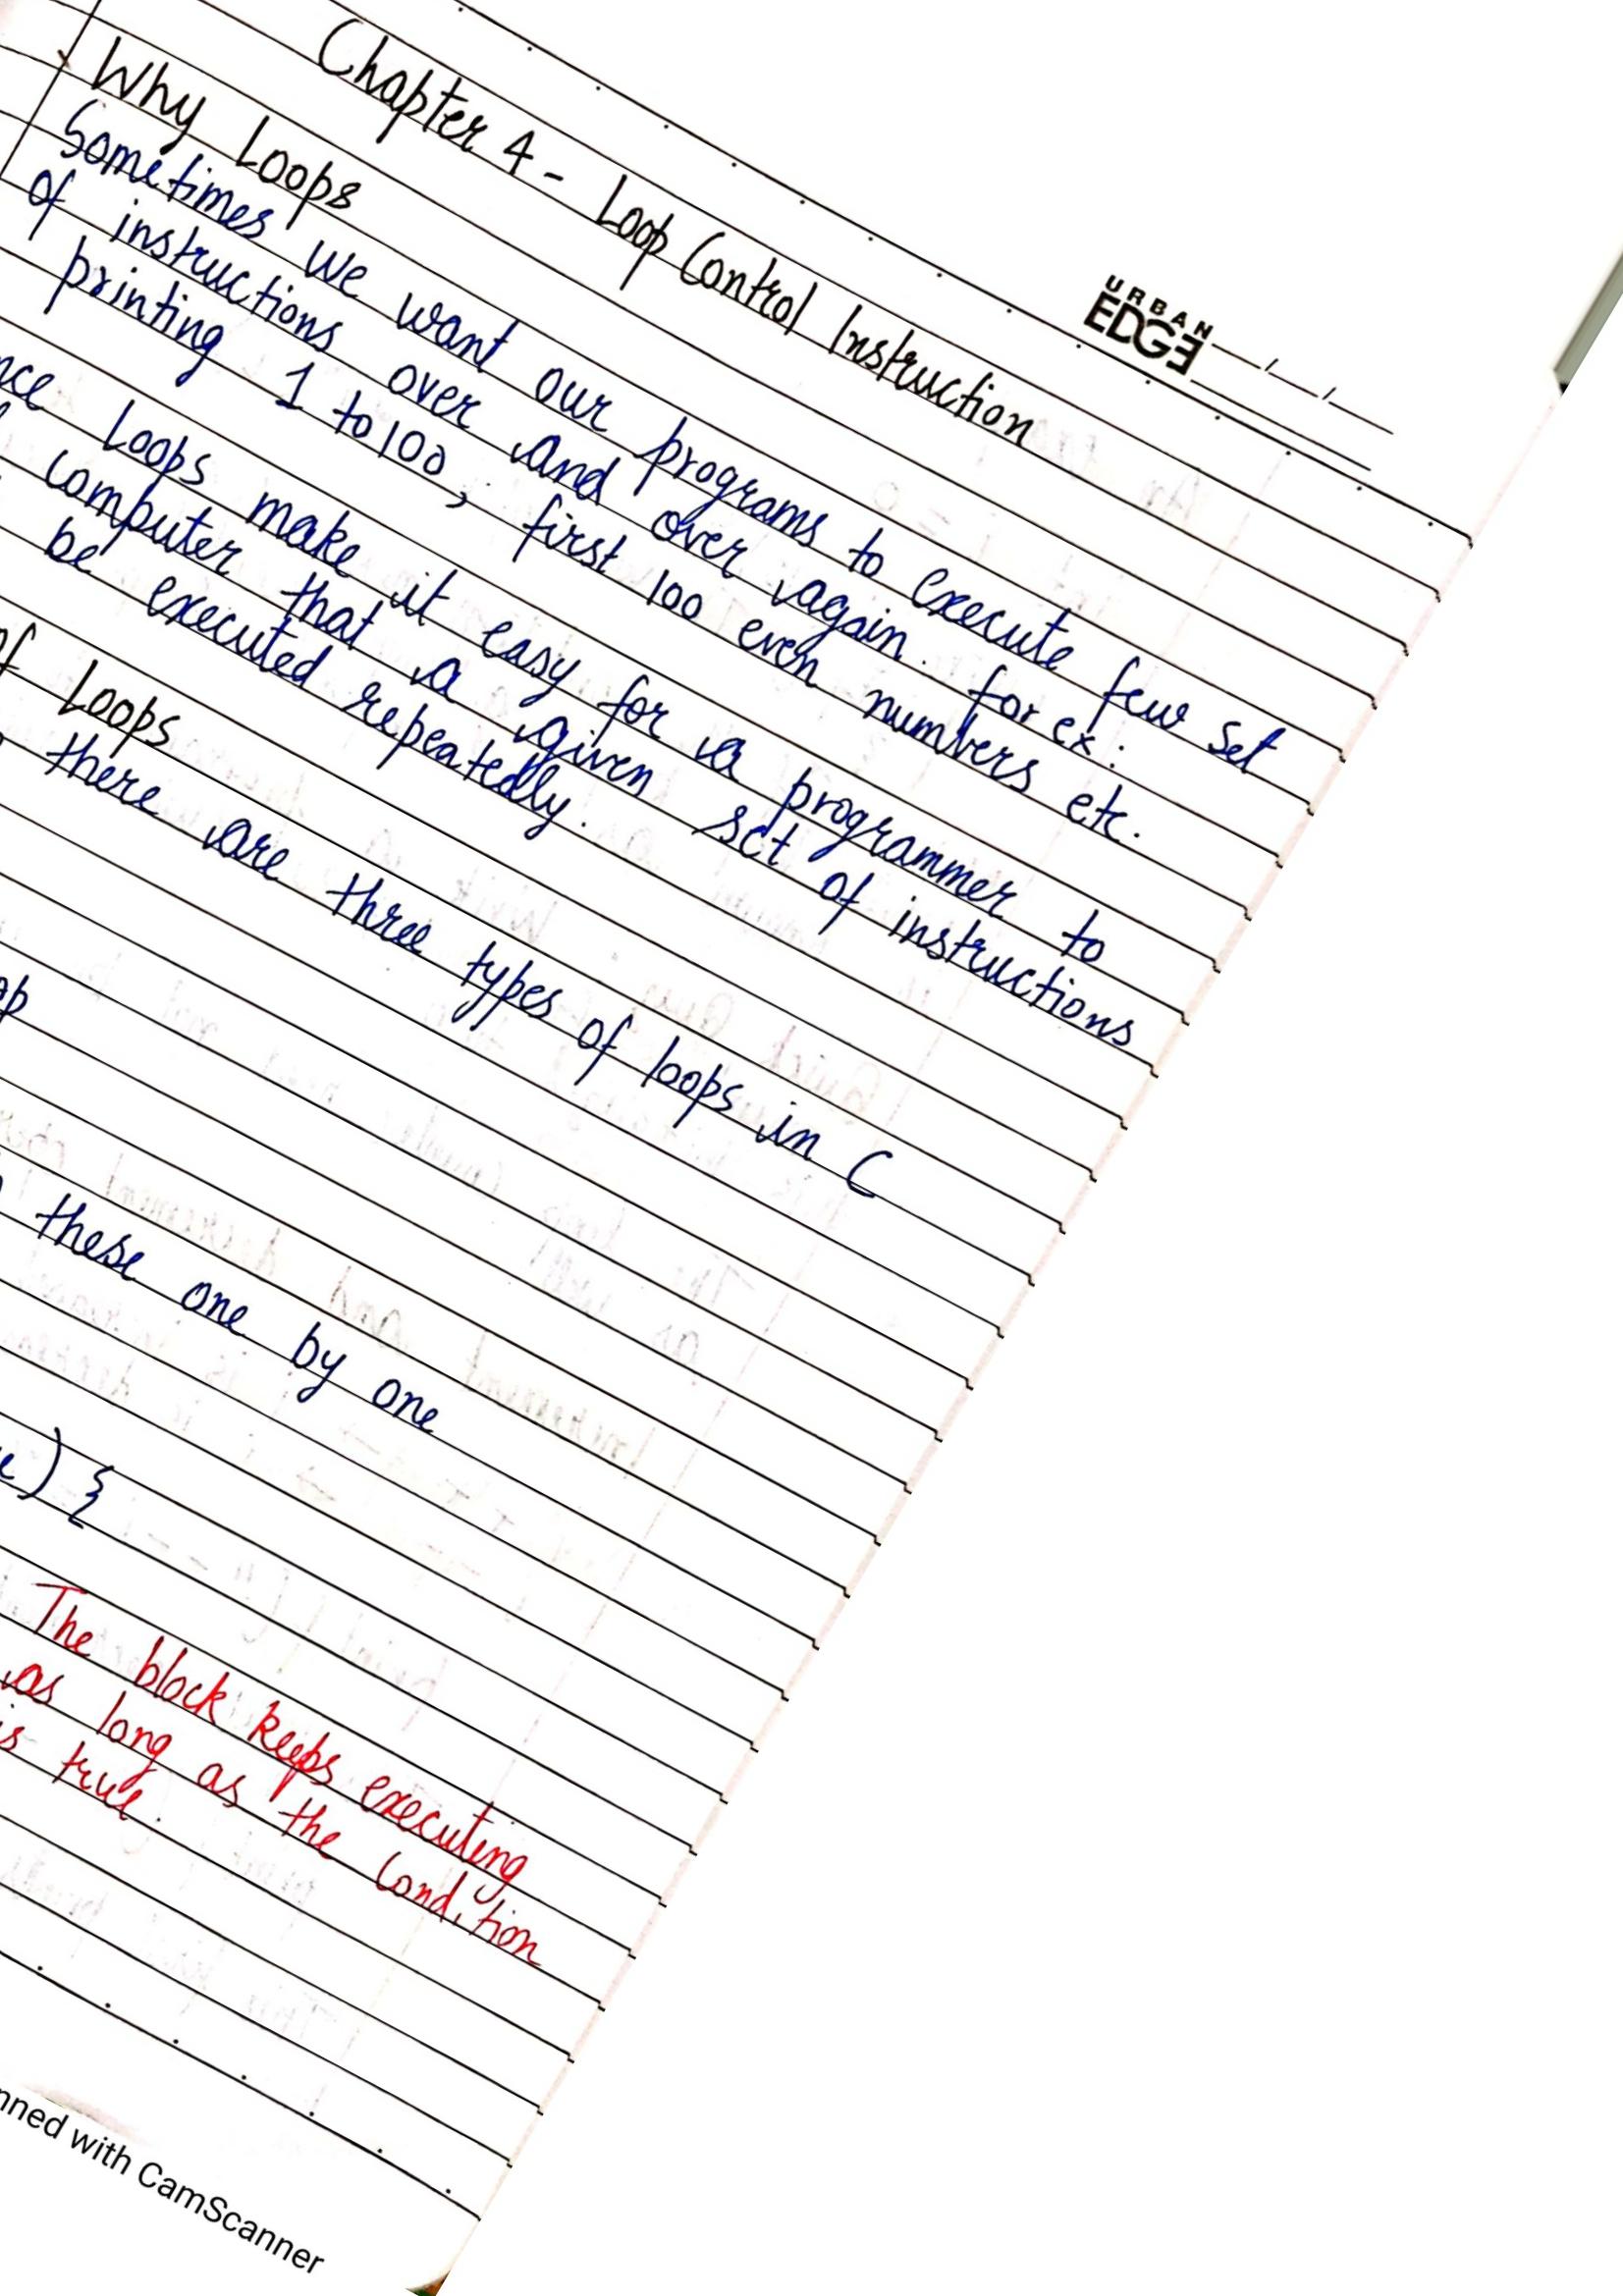 URBAN
EDGE
Chapter 4 - Loop Control Instruction
Why Loops
Sometimes we want our programs to execute few set
of instructions over and over again. for ex:
printing 1 to 100, first 100 even numbers etc.
nce Loops make it easy for a programmer to
computer that a given set of instructions
be executed repeatedly.
of Loops
there are three types of loops in C
op
these one by one
) {
The block keeps executing
as long as the Condition
is true.
nned with CamScanner